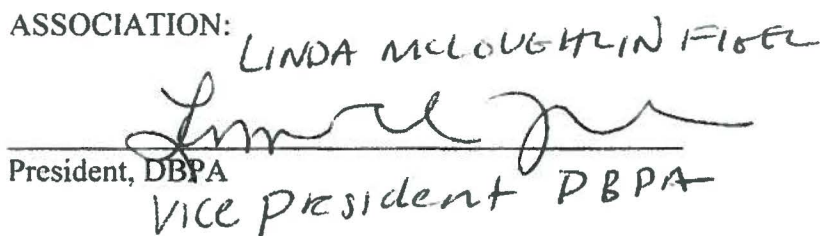 ASSOCIATION:
LINDA MCLOUGHLIN FIGEL
President, DBPA
Vice President DBPA